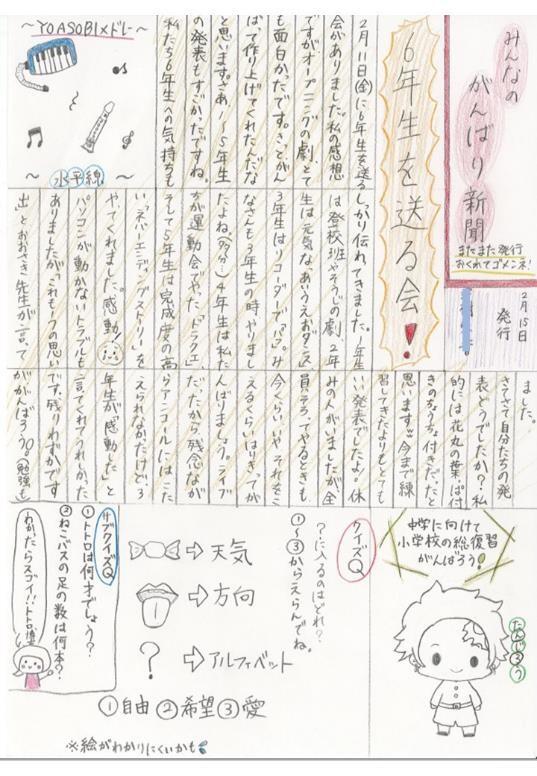 みんなの
がんばり新聞
またまた発行
おくれてゴメンネ!
2月15日
発行
6年生を送る会!
2月11日(金)に6年生を送る
会がありました。私の感想
ですがオープニングの劇、とて
も面白かったです。
ばで作り上げてくれたんだな
と思います。さあ〜5年生
の発表もすごかったですね。
私たち6年生への気持ちも
〜YOASOBI×ドレー〜
〜水平線〜
しっかり伝えてきました。1年生
は登校班やそうじの劇、2年
生は元気なあいうえおダンス
3年生はリコーダーでパプ。み
なさんも3年生の時やりまし
たよね。(多分…)4年生は私た
ちが運動会でやった「ドラクエ」
そして5年生は完成度の高
い「ネバーエンディングストーリー」を
やってくれました。感動!
パソコンが動かないトラブルも
ありましたが、これも一つの思い
出」とおおさき先生が言って
いい発表でしたよ。休
みの人がいましたが、全
員そろってやるときも
今くらい、や、それをこ
えるくらいはりきってが
んばりましょう。ライブ
だったから残念なが
らアンコールにはこた
えられなかったけど、3
年生が「感動した」と
言ってくれてうれしかった
です。残りわずかです
ががんばろう。(勉強も
ました。
さてさて自分たちの発
表どうでしたか?私
的には花丸の葉っぱ付
きのちょうちょ付きだったと
思いますw今まで練
習してきたよりもとても
中学に向けて
小学校の総復習
がんばろう!
たんじろう
クイズQ
?に入るのはどれ?
①〜③からえらんでね。
⇨天気
⇨方向
?⇨アルファベット
①自由②希望③愛
※絵がわかりにくいかも
サブクイズQ
①トトロは何才でしょう?
②ねこバスの足の数は何本?
わかったらスゴイ!!トトロ博士